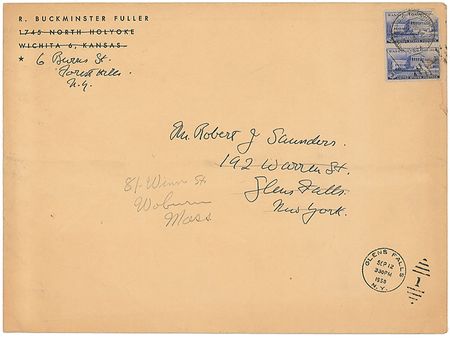 R. BUCKMINSTER FULLER
1745 NORTH HOLYOKE
WICHITA 6, KANSAS
* 6 Burns St.
Forest Hills.
N.Y.
Mr. Robert J Saunders.
192 Warren St.
Glens Falls.
New York.
81 Winn St.
Woburn
Mass
GLENS FALLS
SEP 12
3 30 PM
N.Y.
1